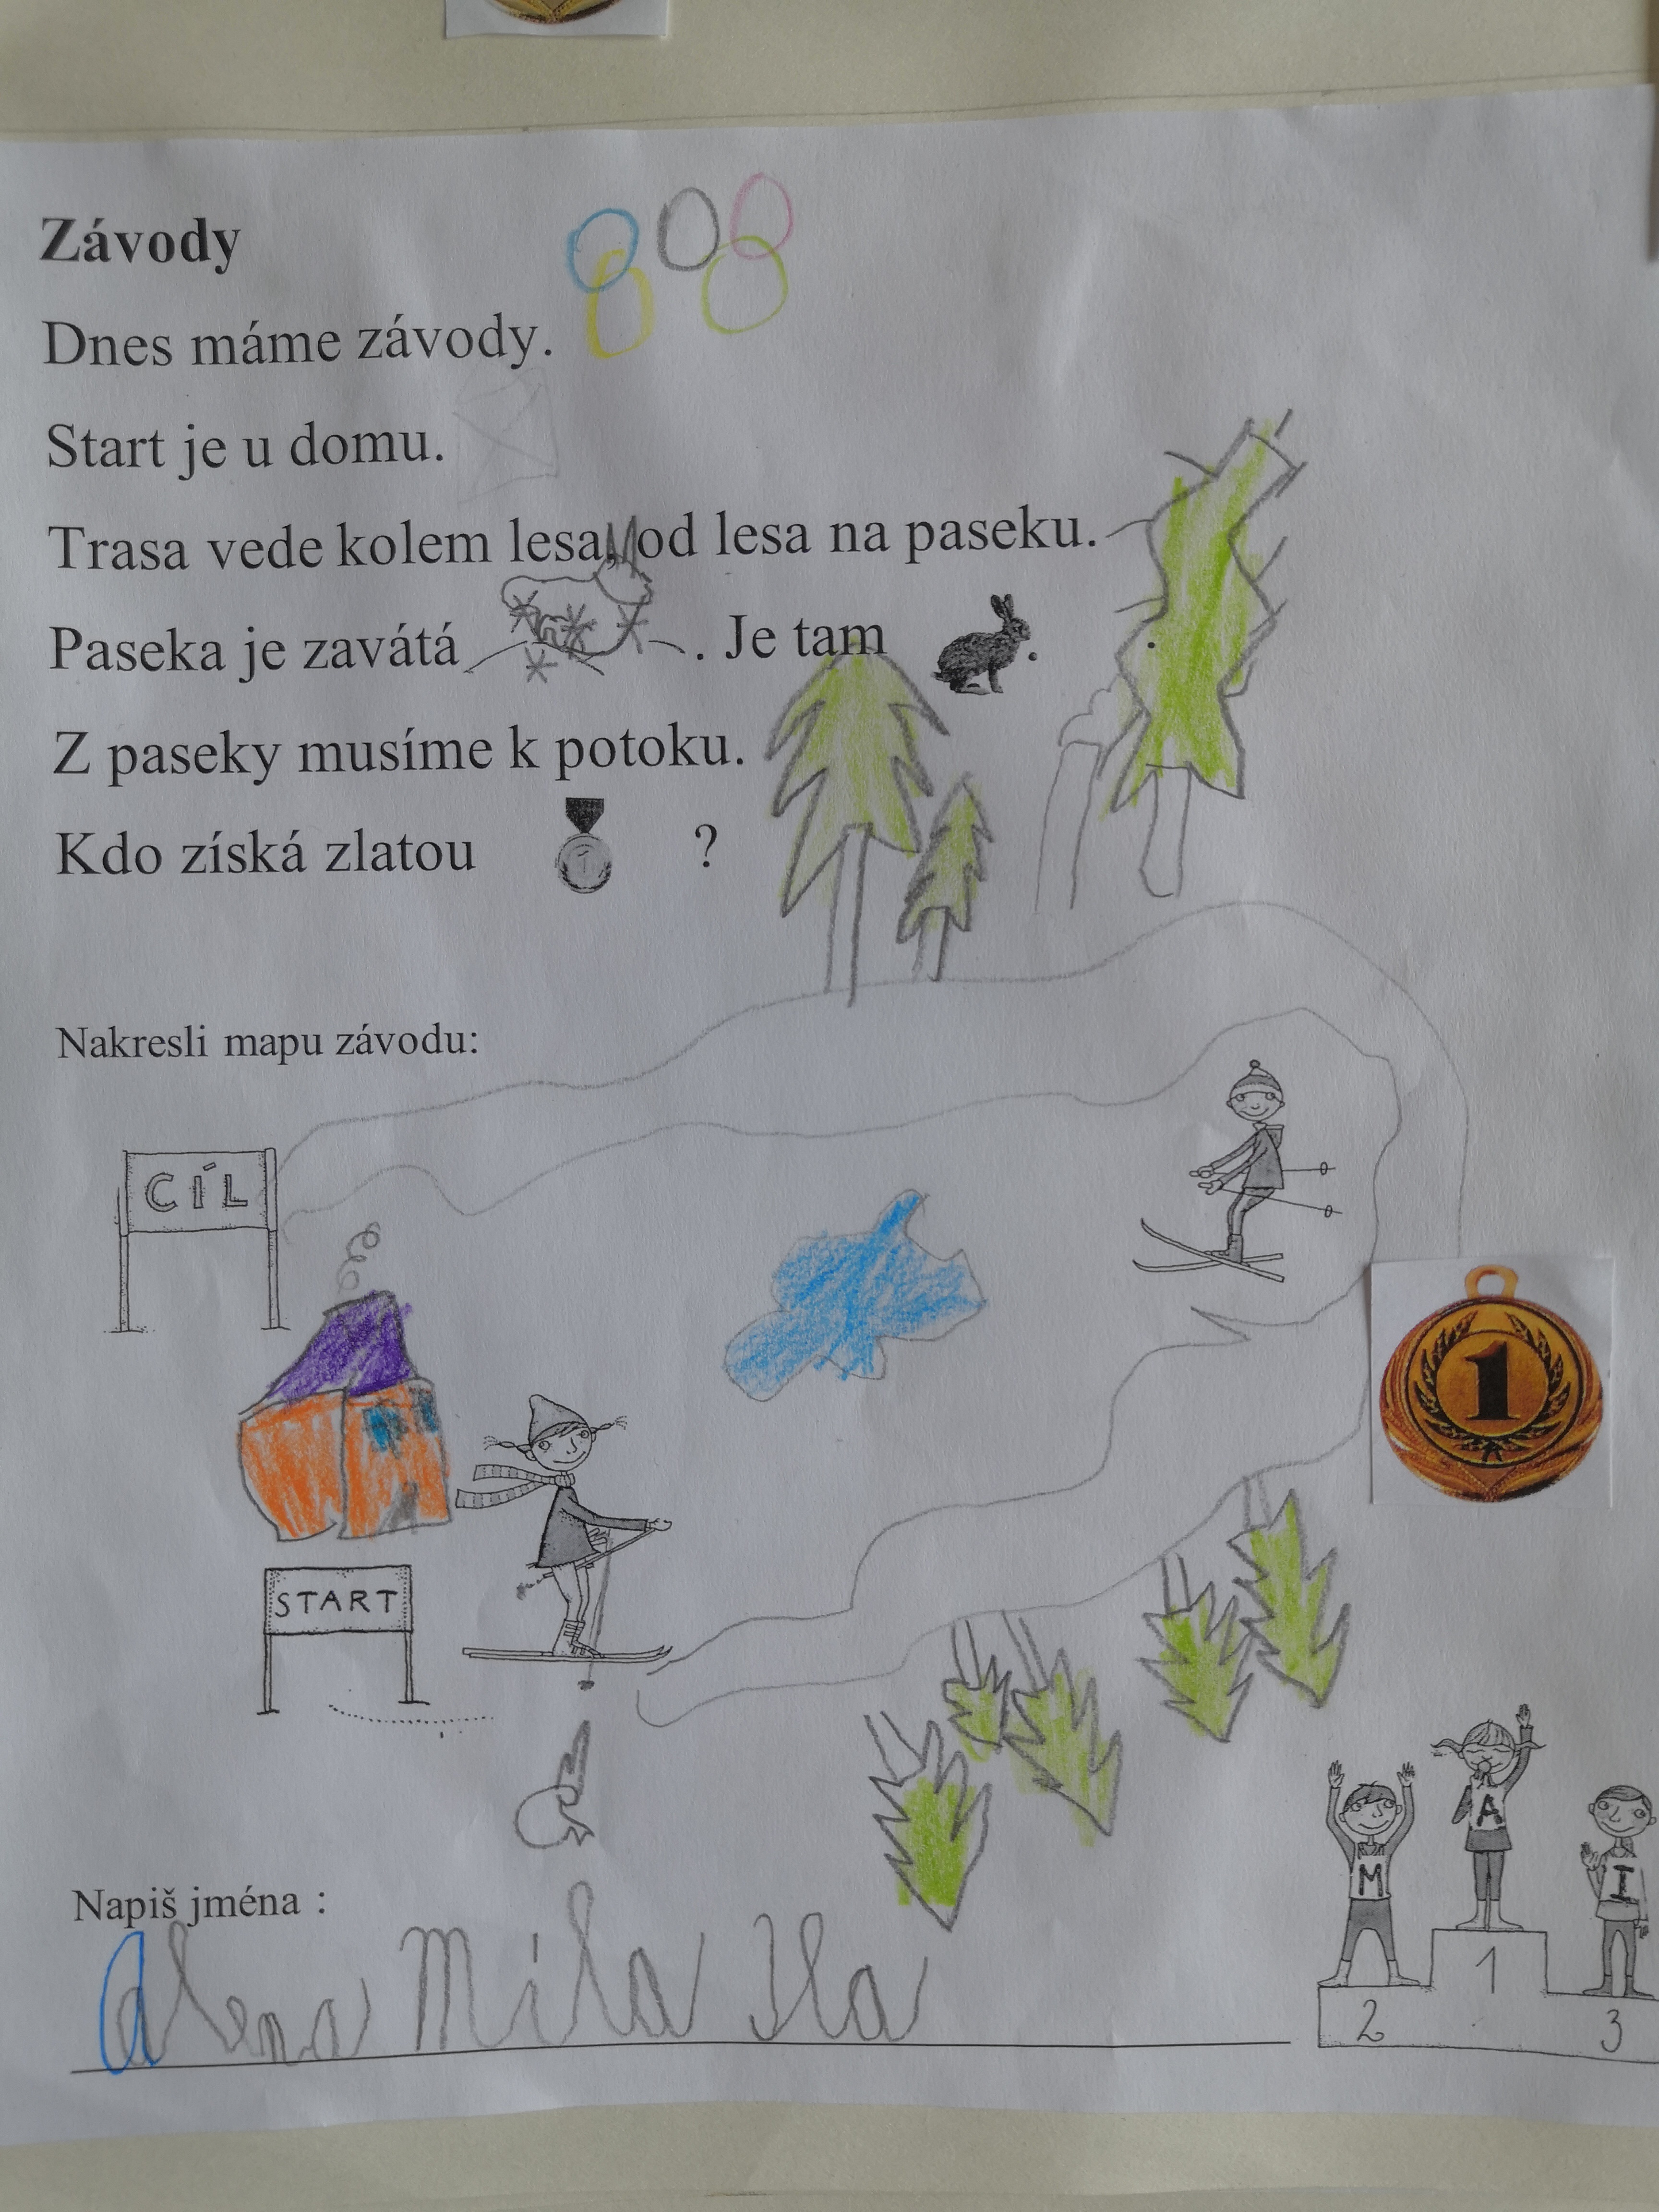 Závody
Dnes máme závody.
Start je u domu.
Trasa vede kolem lesa, od lesa na paseku.
Paseka je zavátá . Je tam .
Z paseky musíme k potoku.
Kdo získá zlatou ?
Nakresli mapu závodu:
CÍL
1
START
A
M
I
1
2
3
Napiš jména :
Alena Míla Ila